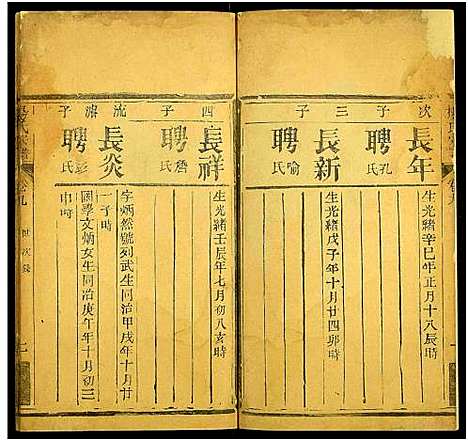 次子
長年
聘孔氏
生光緒辛巳年正月十八辰時
三子
長新
聘喻氏
生光緒戊子年十月廿四卯時
四子
長祥
聘詹氏
生光緒壬辰年七月初八亥時
流濬子
長炎
聘彭氏
字炳然號列武生同治甲戌年十月廿
一子時
國學文炳女生同治庚午年十月初三
申時
卷九